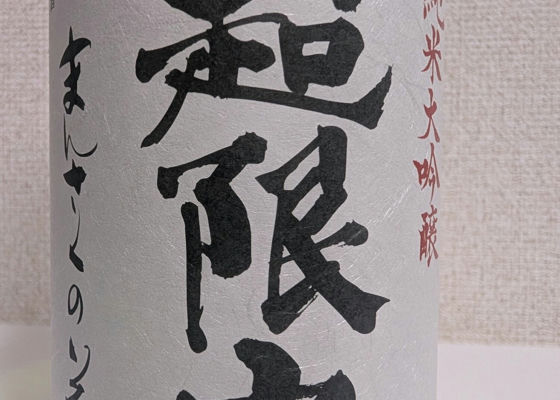 純米大吟醸
超限
まんさくの